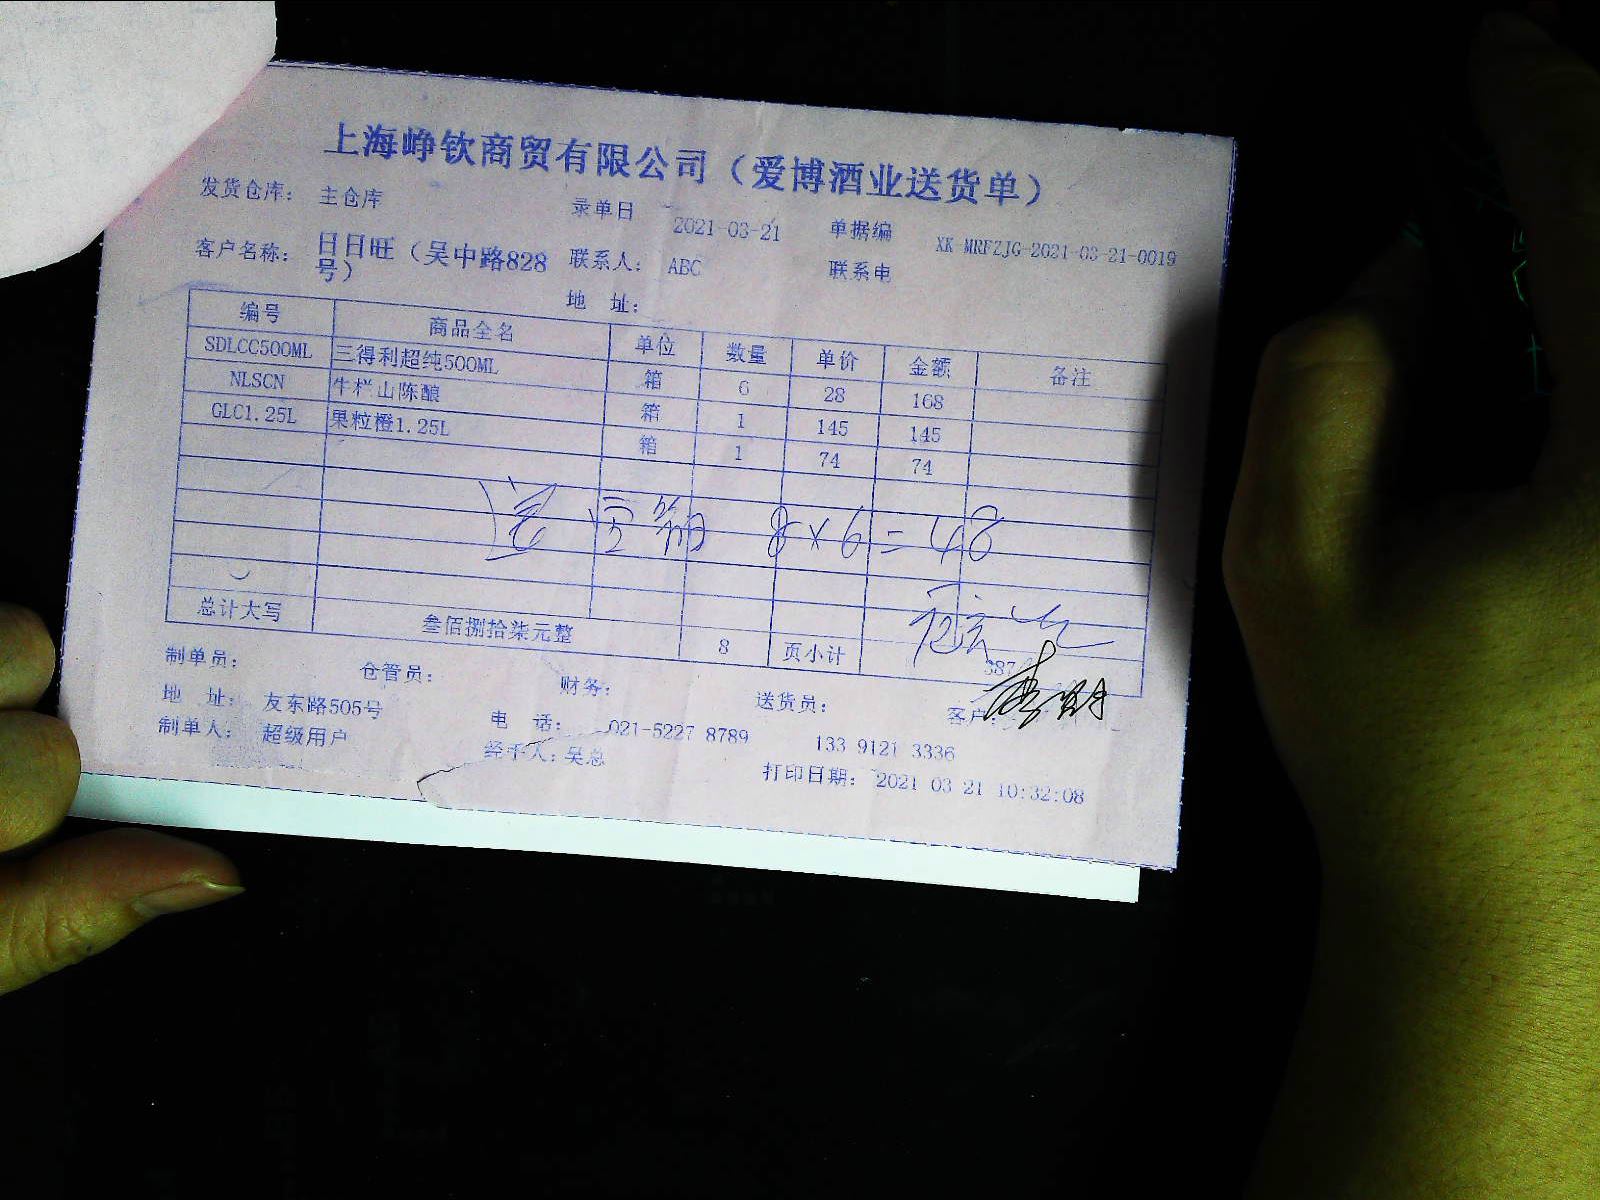 上海峥钦商贸有限公司（爱博酒业送货单）
发货仓库： 主仓库 录单日 2021-03-21 单据编 XK-MRFZJG-2021-03-21-0019
客户名称： 日日旺（吴中路828号） 联系人： ABC 联系电
地 址：
编号 商品全名 单位 数量 单价 金额 备注
SDLCC500ML 三得利超纯500ML 箱 6 28 168
NLSCN 牛栏山陈酿 箱 1 145 145
GLC1.25L 果粒橙1.25L 箱 1 74 74
8×6=48
总计大写 叁佰捌拾柒元整 8 页小计 387
制单员： 仓管员： 财务： 送货员： 客户：
地 址： 友东路505号 电 话： 021-5227 8789 133 9121 3336
制单人： 超级用户 经手人：吴总 打印日期： 2021 03 21 10:32:08